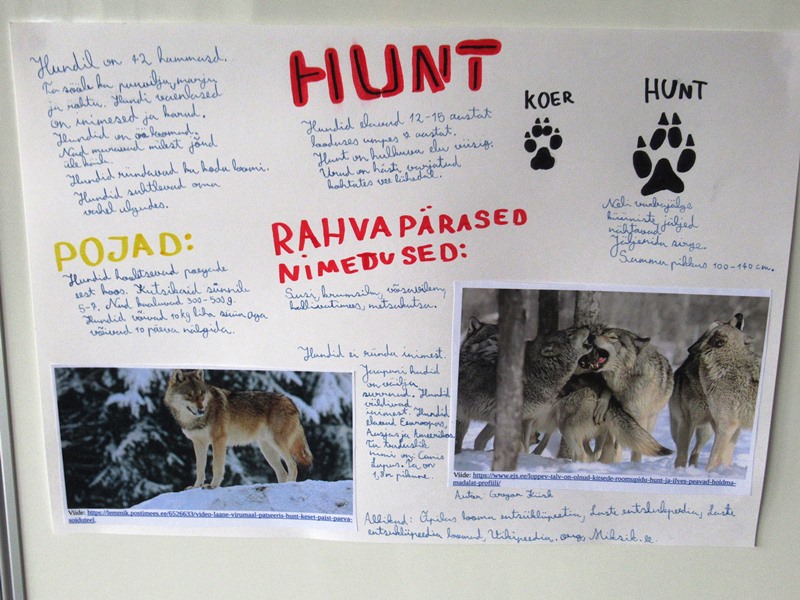 Hundil on 42 hammast.
Ta sööb ka puuvilju, marju
ja rohtu. Hundi vaenlased
on inimesed ja karud.
Hundid on öö loomad.
Nad murravad
Hundid ründavad ka kodu loomi.
Hundid suhtlevad oma
vahel uludes.
HUNT
Hundid elavad 12-15 aastat
looduses umpes 12 aastat.
Hunt on hulkuva elu viisiga.
Urud on hästi varjatud
kohtates vee lähedal.
KOER
HUNT
Neli varbajälge
küüniste jäljed
nähtavad.
Jäljerida sirge.
Sammu pikkus 100-140 cm.
POJAD:
Hundid hoolitsevad poegade
eest koos. Kutsikaid sünnib
5-7. Nad kaaluvad 300-500g.
Hundid võivad 10 kg liha süüa aga
võivad 10 päeva nälgida.
RAHVAPÄRASED
NIMEDUSED:
Susi, kriimsilm, võsavillem,
hallivatimees, metsakutsa.
Hundid ei ründa inimest.
Jaapani hundid
on välja
surnud. Hundid
väldivad
inimest. Hundid
elavad Euroopas,
Aasias ja Ameerikas.
Ta teaduslik
nimi on Canis
Lupus. Ta on
1,8m pikkune.
Viide: https://lemmik.postimees.ee/6526633/video-laane-virumaal-patseeris-hunt-keset-paist-paeva-soiduteel.
Viide: https://www.ejs.ee/loppev-talv-on-olnud-kitsede-roomupidu-hunt-ja-ilves-peavad-hoidma-
madalat-profiili/
Autor: Gregor
Allikad: Õpilase looma entsüklopeetia, Laste entsüklopeedia, Laste
entsüklopeedia loomad, Wikipeedia. org, Miksike.ee